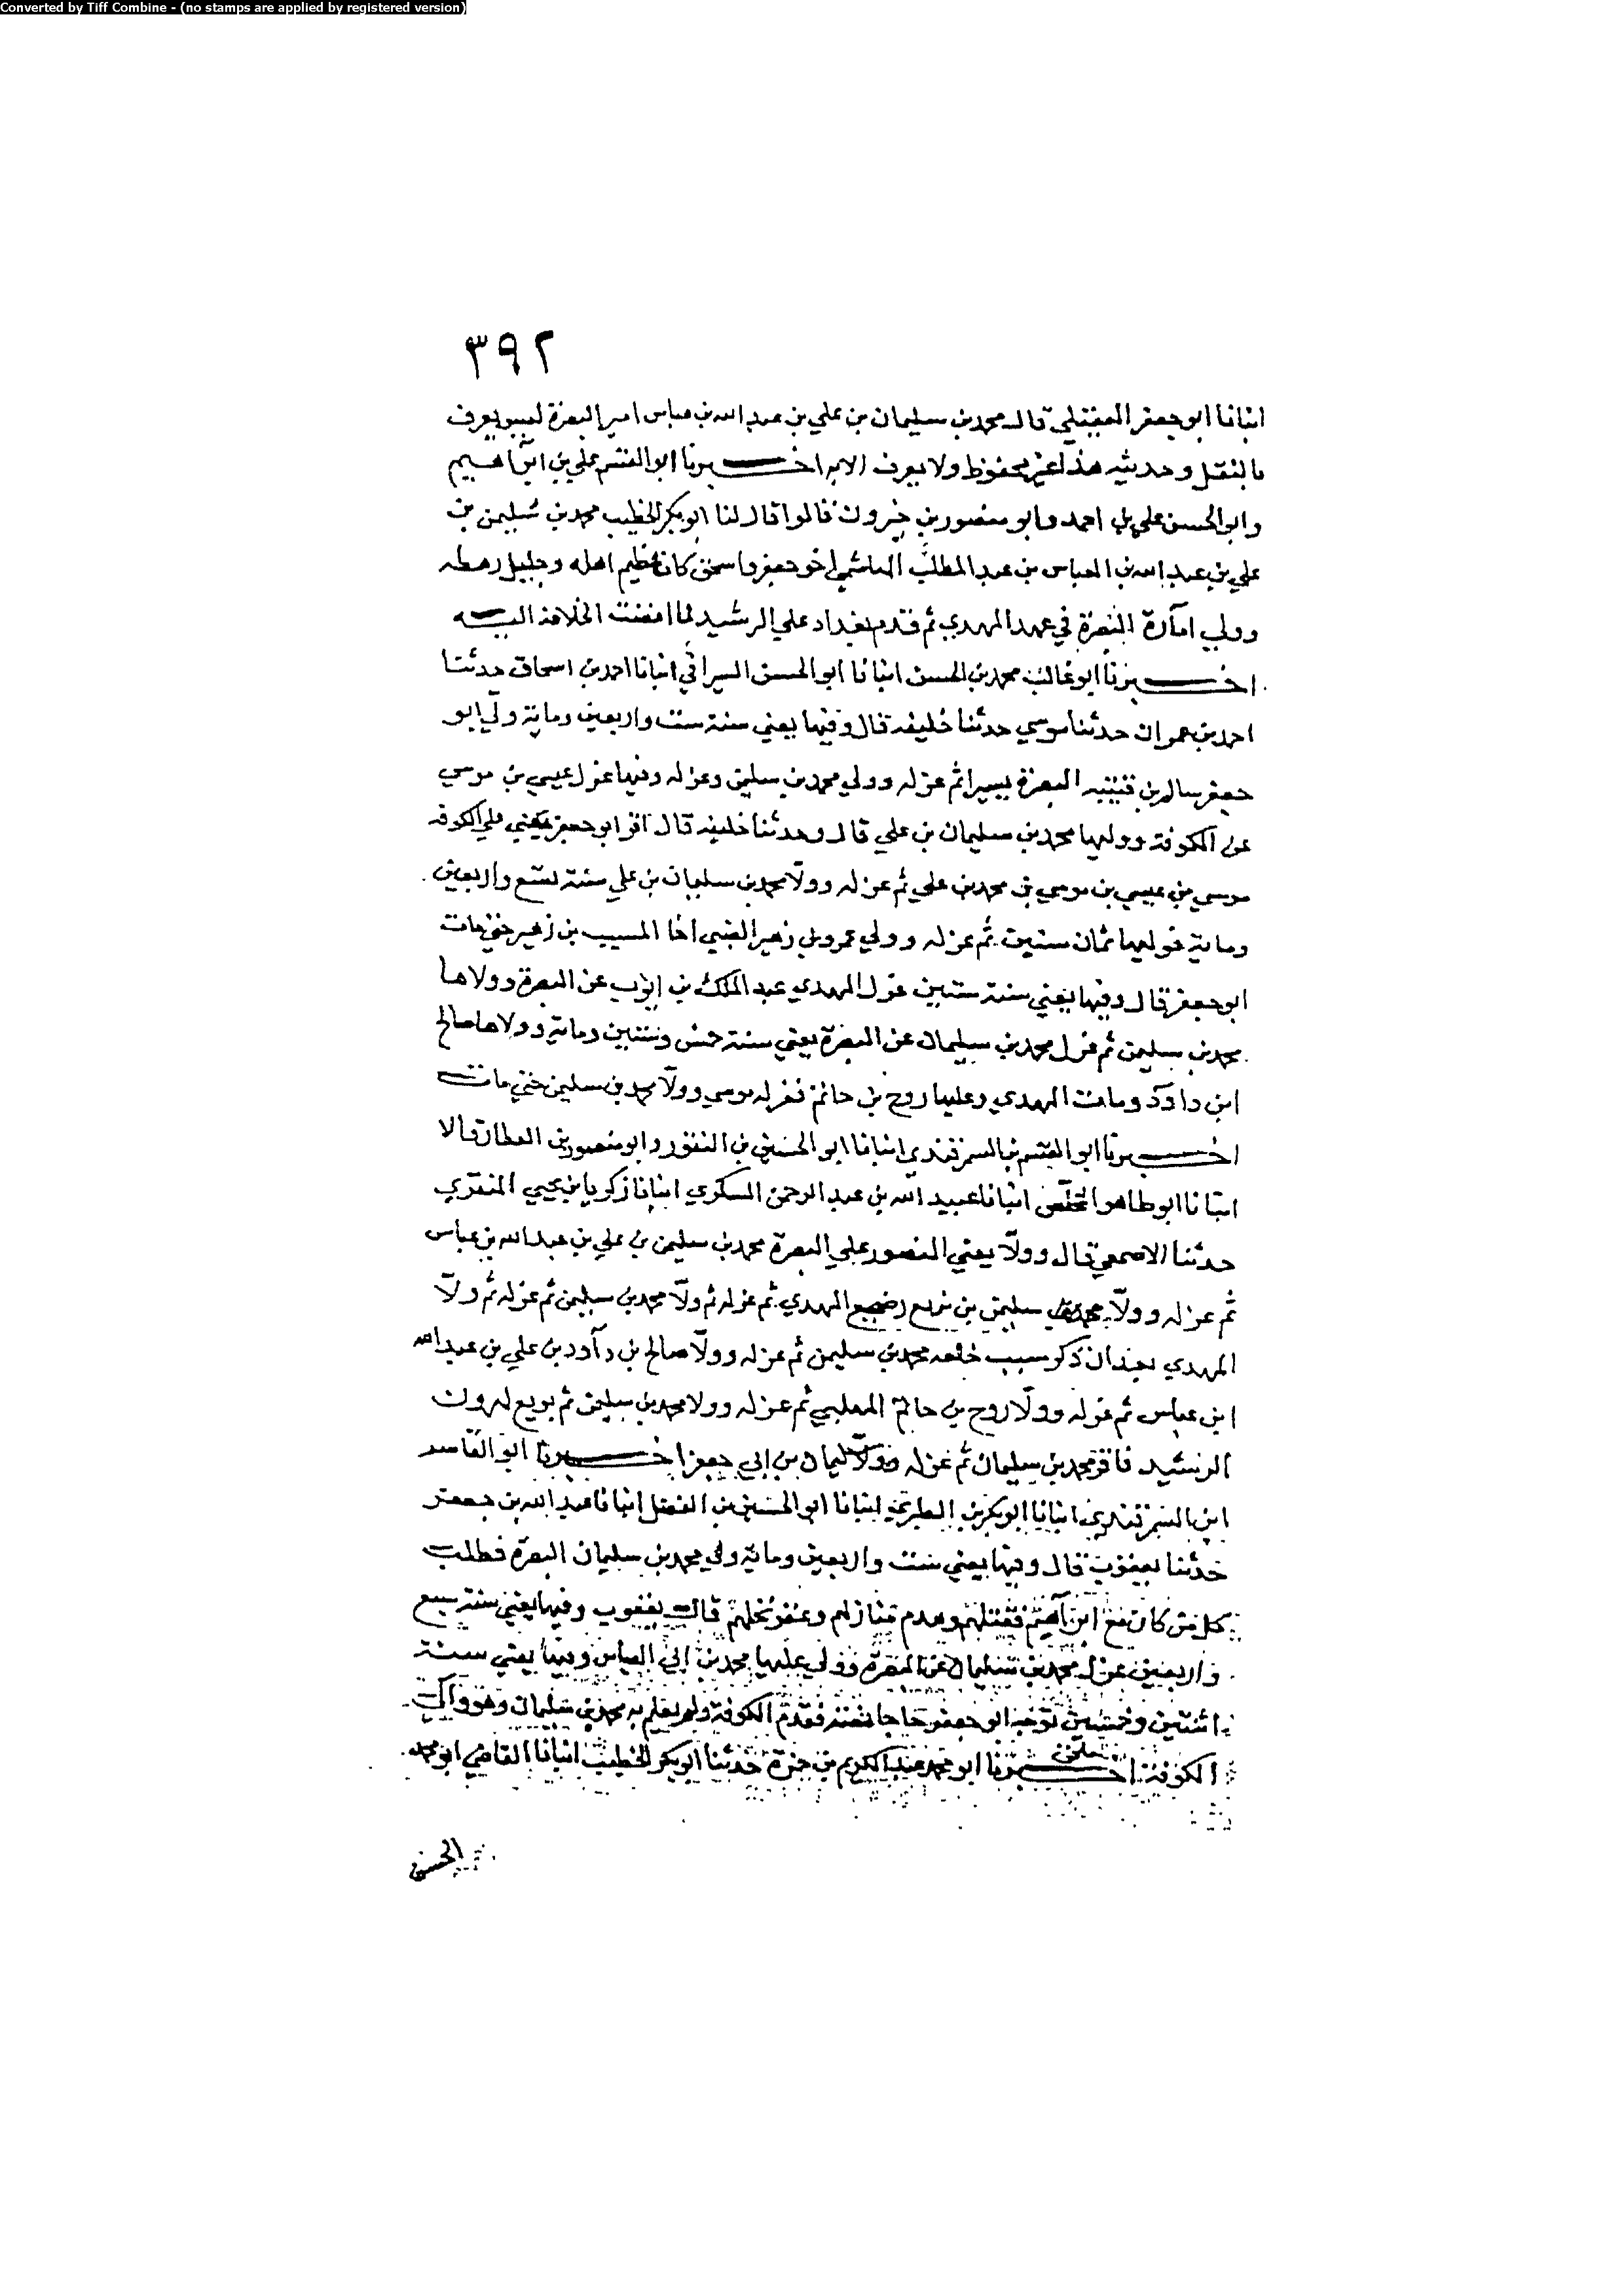 Converted by Tiff Combine - (no stamps are applied by registered version)
٣٩٢
انبانا ابو جعفر العقيلي قال محمد بن سليمان بن علي بن عبد الله بن عباس امير البصرة ليس يعرف
بالنقل وحديثه هذا غير محفوظ ولا يعرف الا به اخبرنا ابو القسم علي بن ابراهيم
وابو الحسن علي بن احمد وابو منصور بن خيرون قالوا قال لنا ابو بكر الخطيب محمد بن سليمن بن
علي بن عبد الله بن العباس بن عبد المطلب الهاشمي اخو جعفر واسحق كان عظيم اهله وجليل رهطه
وولي امارة البصرة في عهد المهدي ثم قدم بغداد علي الرشيد لما افضت الخلافة اليه
اخبرنا ابو غالب محمد بن الحسن انبانا ابو الحسن السيرافي انبانا احمد بن اسحاق حدثنا
احمد بن عمران حدثنا موسي حدثنا خليفه قال وفيها يعني سنة ست واربعين وماية ولي ابو
جعفر سالم بن قتيبه البصرة يسيرا ثم عزله وولي محمد بن سليمن وعزله وفيها عزل عيسي بن موسي
عن الكوفة وولها محمد بن سليمان بن علي قال وحدثنا خليفه قال اقر ابو جعفر يعني علي الكوفه
موسي بن عيسي بن موسي بن محمد بن علي ثم عزله وولا محمد بن سليمان بن علي سنة تسع واربعين
وماية فوليها ثمان سنين ثم عزله وولي عمرو بن زهير الضبي اخا المسيب بن زهير حتي مات
ابو جعفر قال وفيها يعني سنة ستين عزل المهدي عبد الملك بن ايوب عن البصرة وولاها
محمد بن سليمن ثم عزل محمد بن سليمان عن البصرة يعني سنة خمس وستين وماية وولاها صالح
ابن داود ومات المهدي وعليها روح بن حاتم فعزله موسي وولا محمد بن سليمن حتي مات
اخبرنا ابو القسم بن السمرقندي انبانا ابو الحسين بن النقور وابو منصور بن العطار قالا
انبانا ابو طاهر المخلص انبانا عبيد الله بن عبد الرحمن السكري انبانا زكريا بن يحيي المنقري
حدثنا الاصمعي قال وولا يعني المنصور علي البصرة محمد بن سليمن بن علي بن عبد الله بن عباس
ثم عزله وولا محمد بن سليمن بن رضيع المهدي ثم عزله ثم ولا محمد بن سليمن ثم عزله ثم ولا
المهدي بعد ان ذكر سبب خلعه محمد بن سليمن ثم عزله وولا صالح بن داود بن علي بن عبد الله
ابن عباس ثم عزله وولا روح بن حاتم المهلبي ثم عزله وولا محمد بن سليمن ثم بويع لهرون
الرشيد فاقر محمد بن سليمان ثم عزله وولا سليمان بن ابي جعفر اخبرنا ابو القاسم
ابن السمرقندي انبانا ابو بكر بن الطبري انبانا ابو الحسين بن الفضل انبانا عبد الله بن جعفر
حدثنا يعقوب قال وفيها يعني ست واربعين وماية ولي محمد بن سليمان البصرة فطلب
كل من كان مع ابراهيم فقتلهم وهدم منازلهم وعقر نخلهم قال يعقوب وفيها يعني سنة سبع
واربعين عزل محمد بن سليمان عن البصرة وولي عليها محمد بن ابي العباس وفيها يعني سنة
اثنتين وخمسين توجه ابو جعفر حاجا بنفسه فقدم الكوفة ولم يعلم به محمد بن سليمان وهو والي
الكوفة اخبرنا ابو محمد عبد الكريم بن حمزة حدثنا ابو بكر الخطيب انبانا القاضي ابو محمد
الحسن